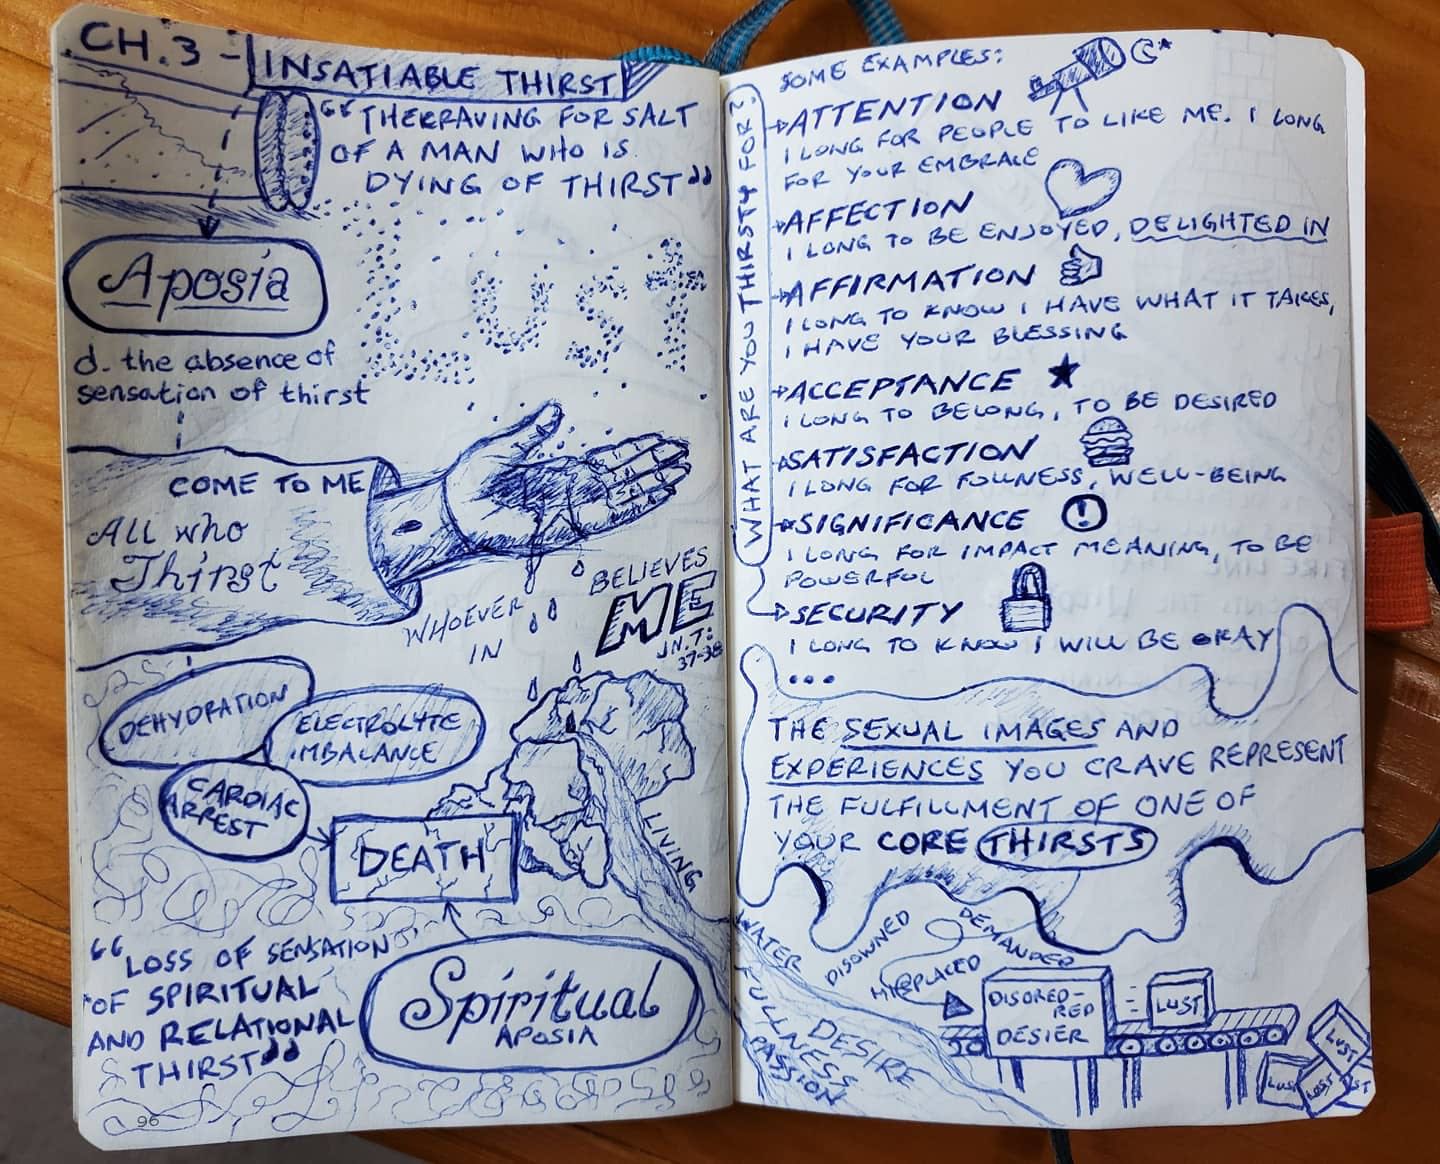 CH. 3 - INSATIABLE THIRST
"THE CRAVING FOR SALT
OF A MAN WHO IS
DYING OF THIRST"
Aposia
d. the absence of
sensation of thirst
LUST
COME TO ME
All who
Thirst
WHOEVER
BELIEVES
IN
ME
JN. 7:
37-38
DEHYDRATION
ELECTROLYTE
IMBALANCE
CARDIAC
ARREST
DEATH
"LOSS OF SENSATION
OF SPIRITUAL
AND RELATIONAL
THIRST"
Spiritual
APOSIA
96
LIVING
WATER
FULLNESS
DESIRE
PASSION
WHAT ARE YOU THIRSTY FOR?
SOME EXAMPLES:
ATTENTION
I LONG FOR PEOPLE TO LIKE ME. I LONG
FOR YOUR EMBRACE
AFFECTION
I LONG TO BE ENJOYED, DELIGHTED IN
AFFIRMATION
I LONG TO KNOW I HAVE WHAT IT TAKES,
I HAVE YOUR BLESSING
ACCEPTANCE
I LONG TO BELONG, TO BE DESIRED
SATISFACTION
I LONG FOR FULLNESS, WELL-BEING
SIGNIFICANCE
I LONG FOR IMPACT MEANING, TO BE
POWERFUL
SECURITY
I LONG TO KNOW I WILL BE OKAY
...
THE SEXUAL IMAGES AND
EXPERIENCES YOU CRAVE REPRESENT
THE FULFILLMENT OF ONE OF
YOUR CORE THIRSTS
DISOWNED
DEMANDED
MISPLACED
DISORED-
RED
DESIER
LUST
LUST
LUST
LUST